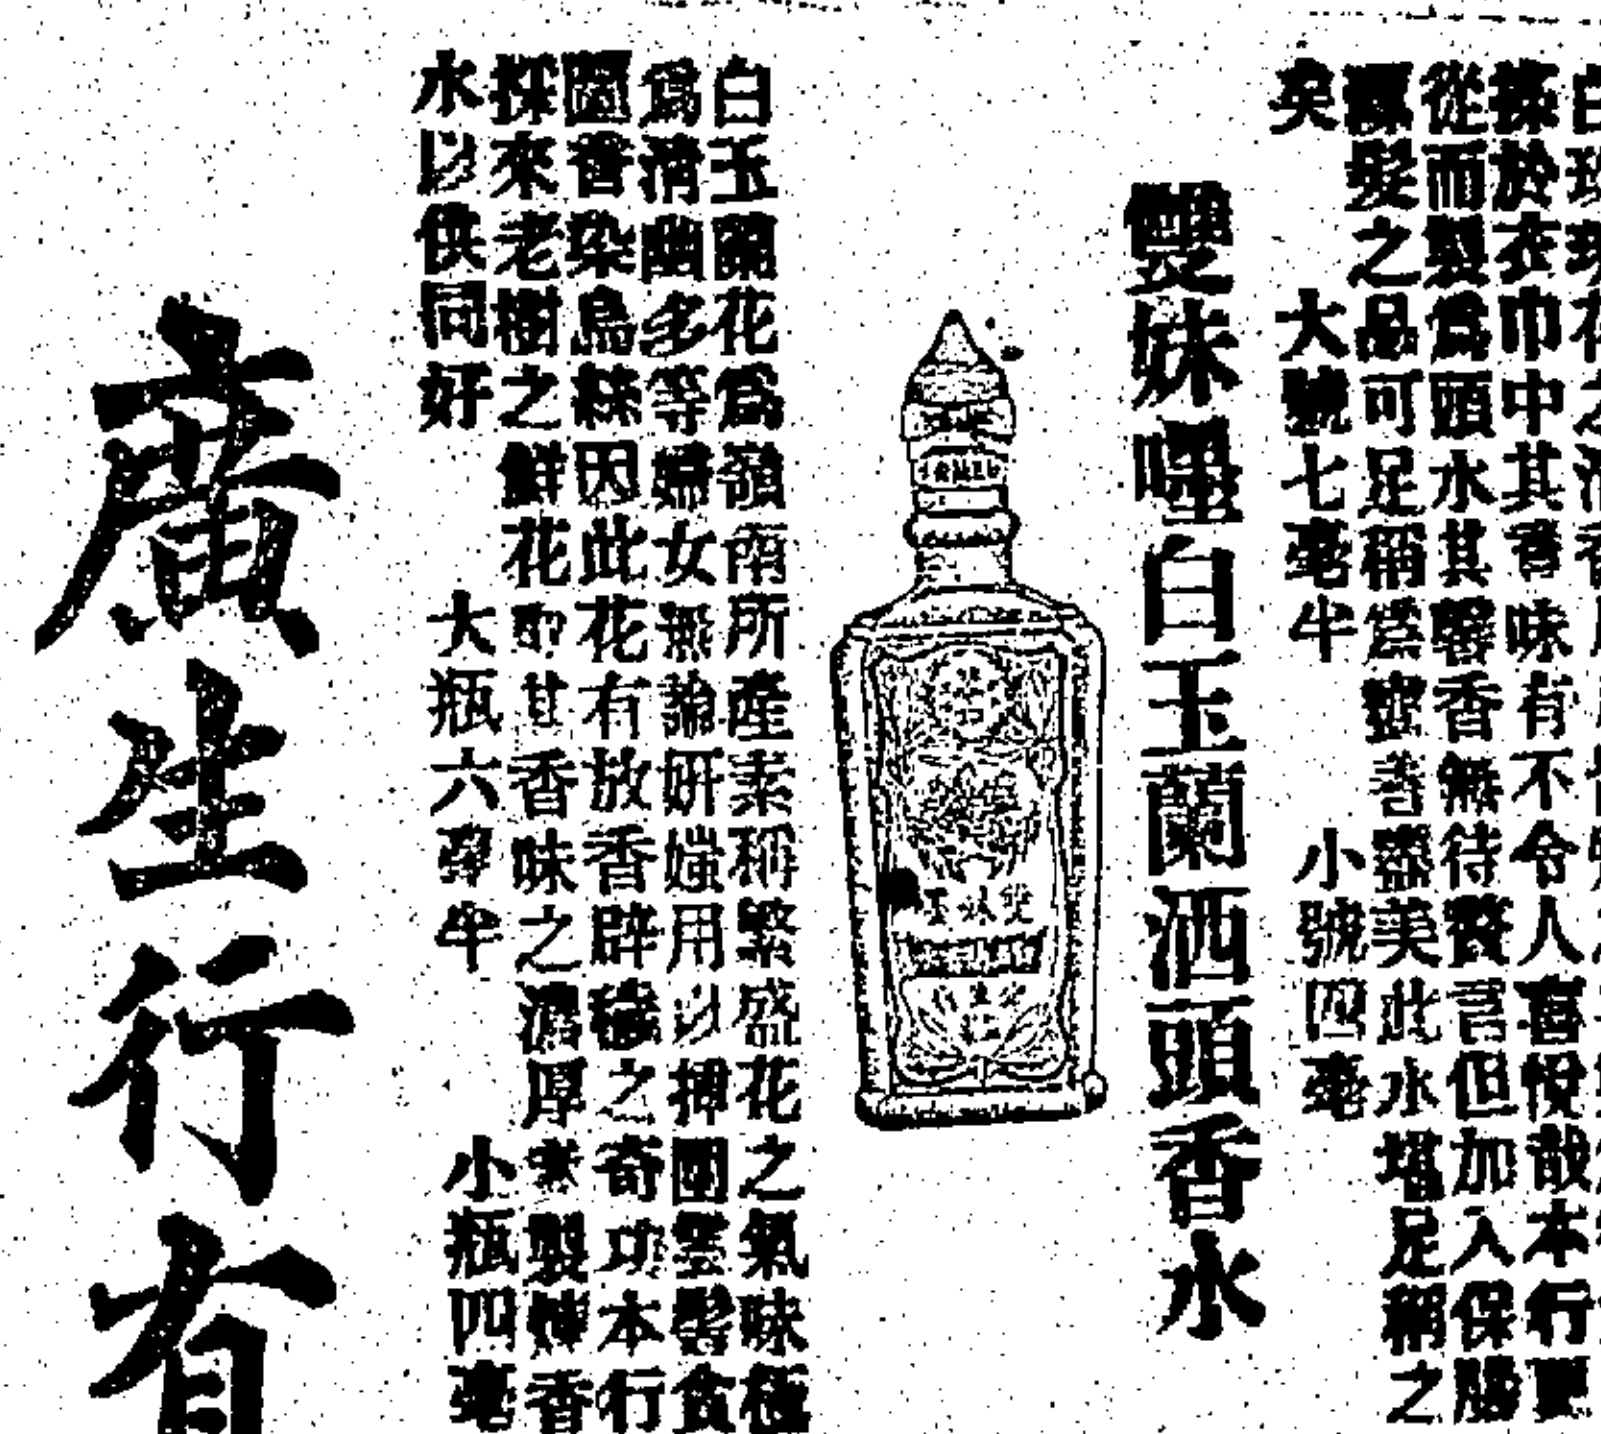 搽於衣巾中其香味有不令人喜悅哉本行更
從而製爲頭水其馨香無待贅言但加入保
髮之品可足稱爲盡善盡美此水堪足稱之
矣
大號七毫半
小號四毫
雙妹嚜白玉蘭洒頭香水
白玉蘭花爲嶺南所產素稱繁盛花之氣味極
爲清幽多等婦女無論妍媸用以押圍雲鬢貪
圖香染烏絲因此花有放香辟穢之奇功本行
採來老樹之鮮花即甘香味之濃厚者製煉香
水以供同好
大瓶六毫半
小瓶四毫
雙妹嚜
廣生行有